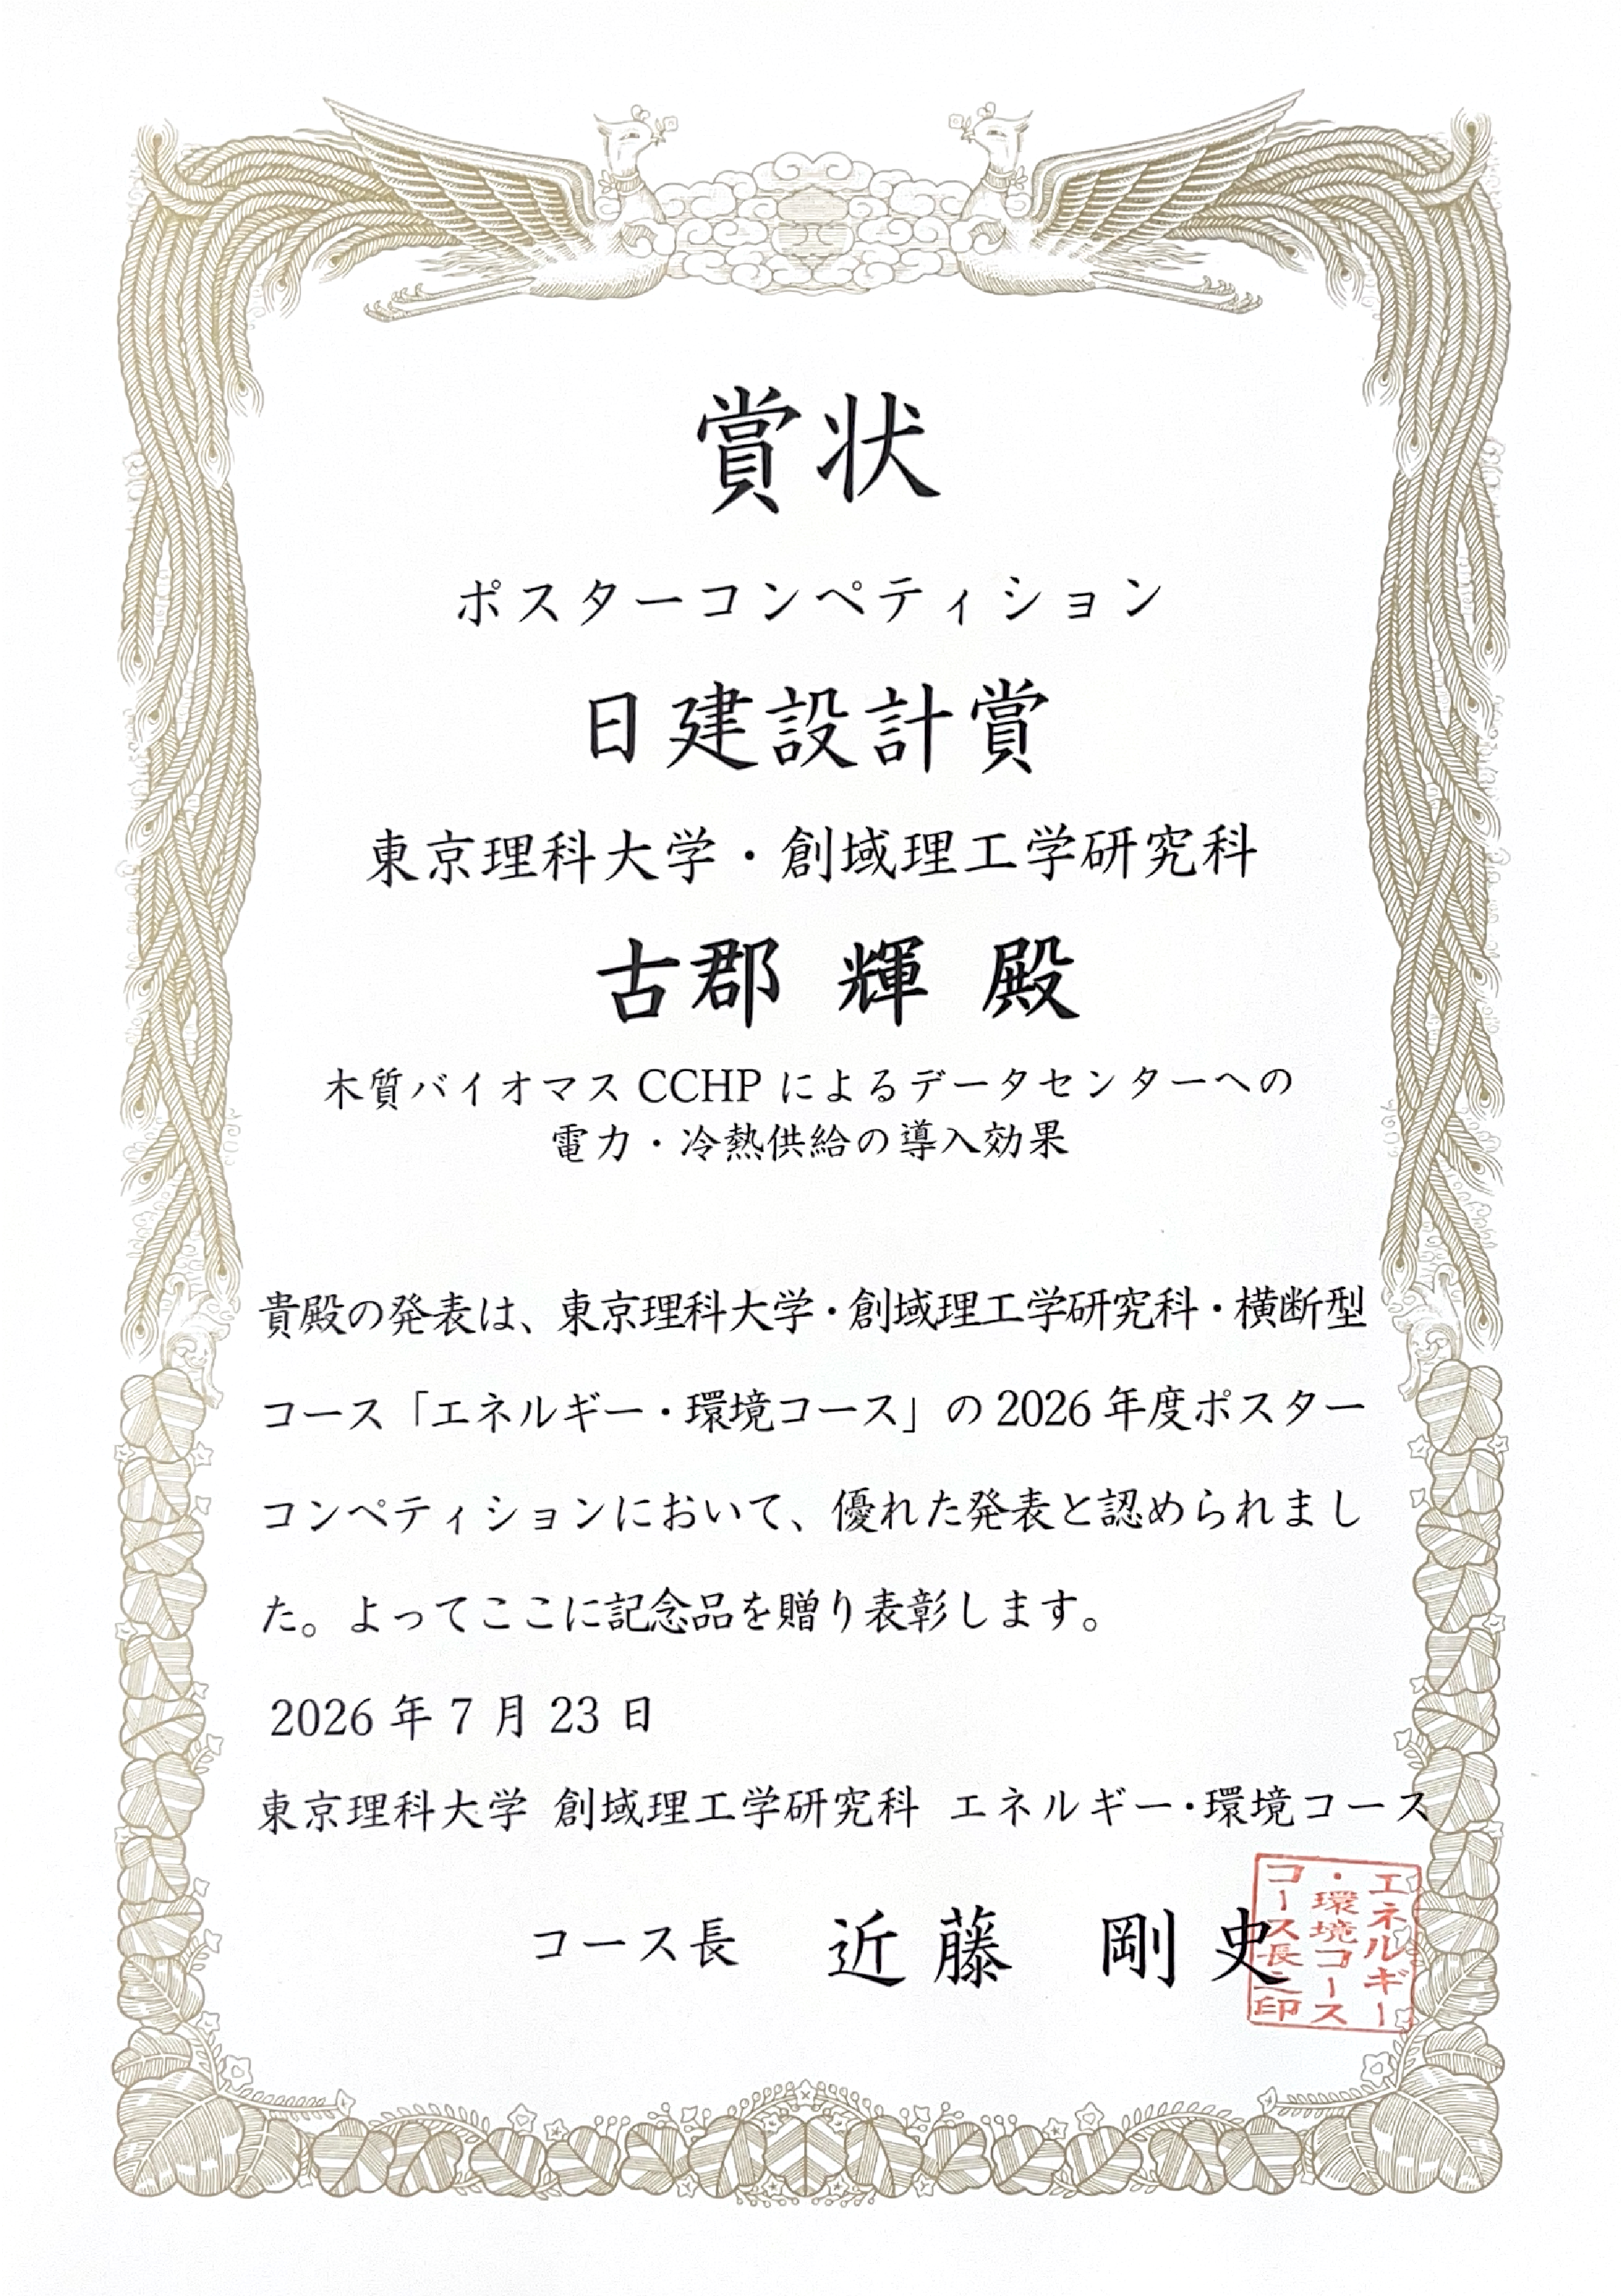 賞状
ポスターコンペティション
日建設計賞
東京理科大学・創域理工学研究科
古郡 輝 殿
木質バイオマス CCHP によるデータセンターへの
電力・冷熱供給の導入効果
貴殿の発表は、東京理科大学・創域理工学研究科・横断型
コース「エネルギー・環境コース」の 2026 年度ポスター
コンペティションにおいて、優れた発表と認められまし
た。よってここに記念品を贈り表彰します。
2026 年 7 月 23 日
東京理科大学 創域理工学研究科 エネルギー・環境コース
コース長 近藤 剛史
エネルギー
・環境コース
コース長之印